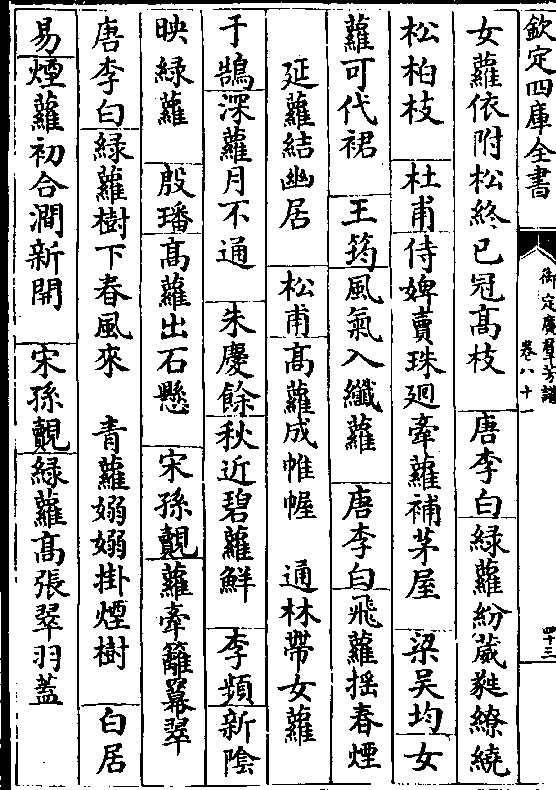 欽定四庫全書
御定廣羣芳譜
卷八十一
四十三
女蘿依附松終已冠高枝 唐李白緑蘿紛葳蕤繚繞
松柏枝 杜甫侍婢賣珠廻牽蘿補茅屋 梁吳均女
蘿可代裙 王筠風氣入纖蘿 唐李白飛蘿搖春煙
延蘿結幽居 松甫高蘿成帷幄 通林帶女蘿
于鵠深蘿月不通 朱慶餘秋近碧蘿鮮 李頻新陰
映緑蘿 殷璠高蘿出石懸 宋孫覿蘿牽籬羃翠
唐李白緑蘿樹下春風來 青蘿嫋嫋掛煙樹 白居
易煙蘿初合澗新開 宋孫覿緑蘿高張翠羽蓋